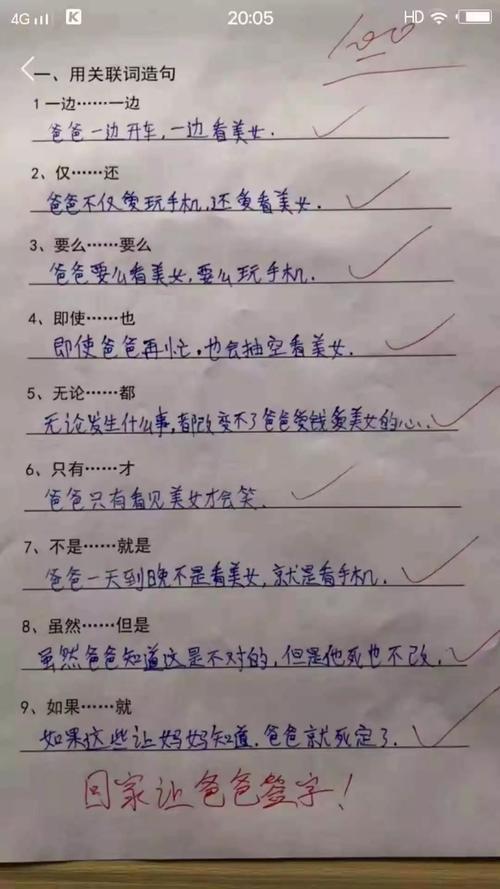 4G K 20:05 HD
100
一、用关联词造句
1 一边……一边
爸爸一边开车，一边看美女．
2、仅……还
爸爸不仅爱玩手机，还爱看美女．
3、要么……要么
爸爸要么看美女，要么玩手机．
4、即使……也
即使爸爸再忙，也会抽空看美女．
5、无论……都
无论发生什么事，都改变不了爸爸爱钱爱美女的心．．
6、只有……才
爸爸只有看见美女才会笑．
7、不是……就是
爸爸一天到晚不是看美女，就是看手机．
8、虽然……但是
虽然爸爸知道这是不对的，但是他死也不改．
9、如果……就
如果这些让妈妈知道．爸爸就死定了．
回家让爸爸签字！